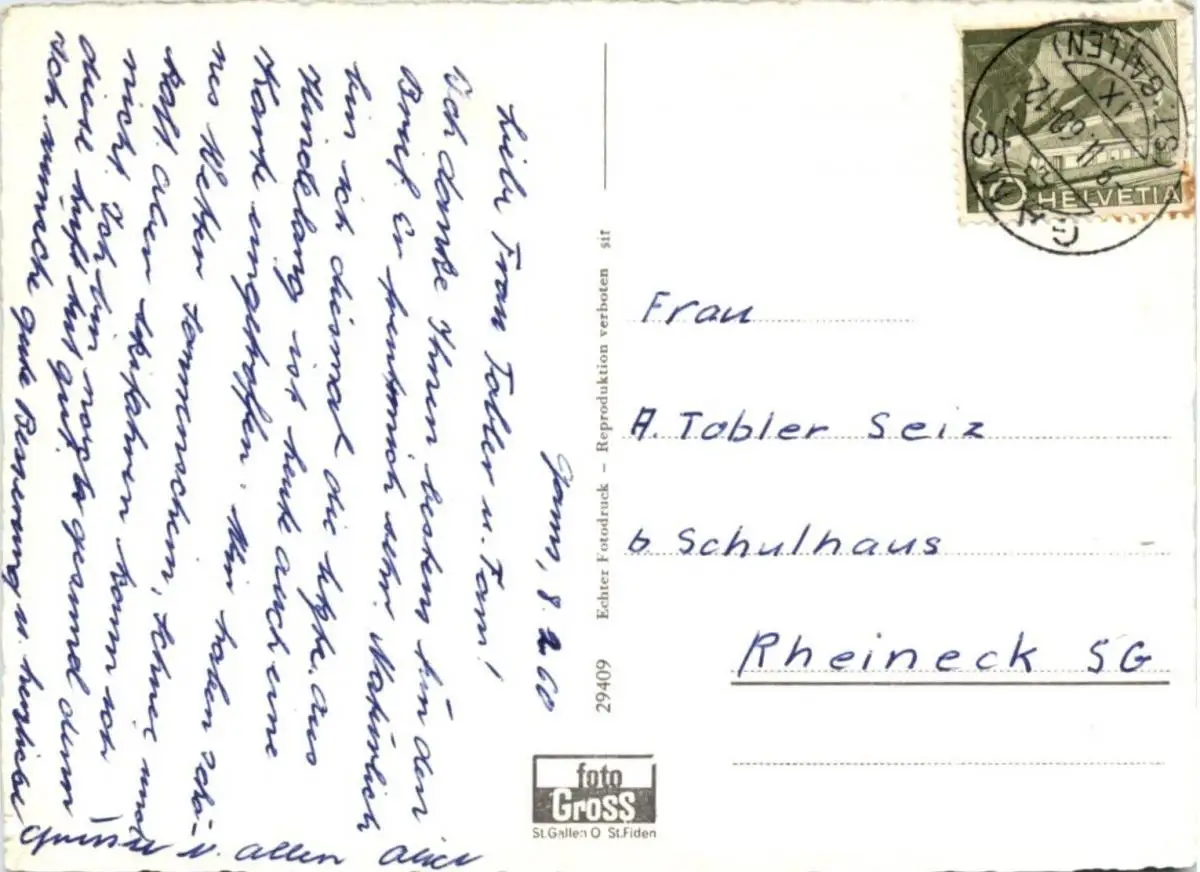 Gams, 8. 2. 60
Liebe Frau Tobler u. Fam!
Ich danke Ihnen bestens für den
Brief. Er freut mich sehr. Natürlich
bin ich diesmal die letzte. Aus
Hindelang ist heute auch eine
Karte eingetroffen. Wir haben schö-
nes Wetter Sonnenschein, Schnee und
kalt aber skifahren kann ich
nicht. Ich bin noch
diese Luft tut gut gesund denn
Ich wünsche gute Besserung u. herzliche
Grüsse v. allen Alice
29409 Echter Fotodruck – Reproduktion verboten sif
foto
Gross
St.Gallen O St.Fiden
GAMS
(ST. GALLEN)
IX
10 HELVETIA
Frau
A. Tobler Seiz
b Schulhaus
Rheineck SG